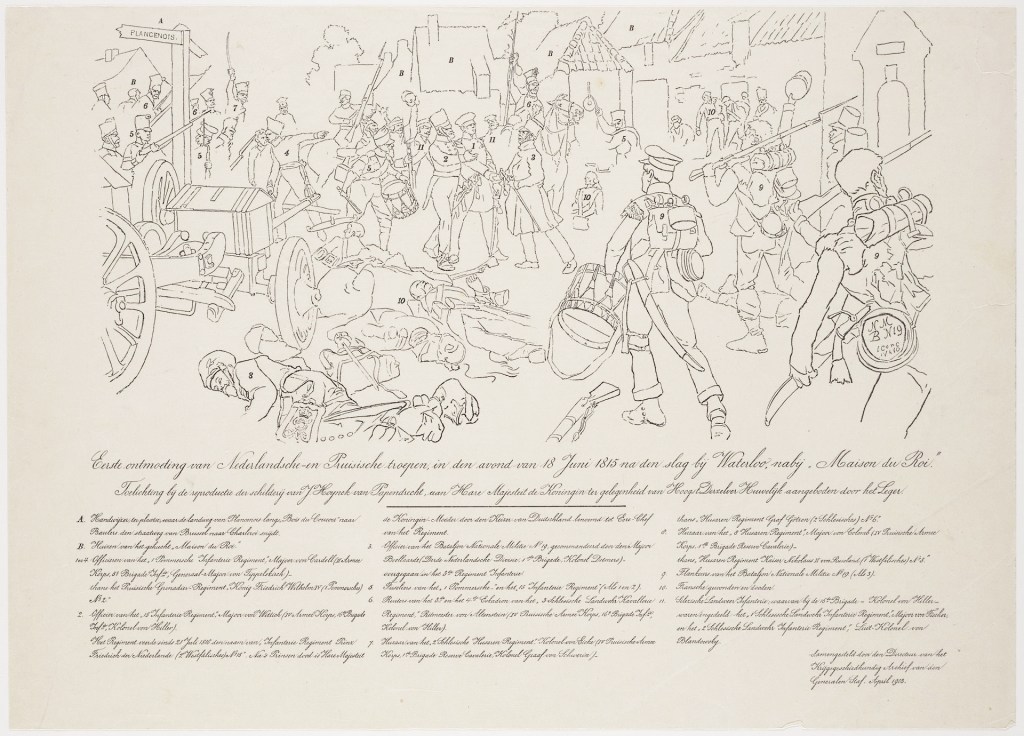 A
PLANCENOIS.
B
6
5
6
7
5
4
B
B
11
2
1
11
3
B
6
B
5
10
10
9
9
9
10
8
Eerste ontmoeting van Nederlandsche- en Pruisische troepen, in den avond van 18 Juni 1815 na den slag bij Waterloo, nabij „Maison du Roi".
Toelichting bij de reproductie der schilderij van J. Hoynck van Papendrecht, aan Hare Majesteit de Koningin ter gelegenheid van Hoogst Derzelver Huwelijk aangeboden door het Leger.
A. Handwijzer ter plaatse, waar de landweg van Plancenois langs Bois du naar
den straatweg van Brussel naar Charleroi snijdt.
B. Huizen van het gehucht „Maison du Roi".
1 en 4. Officieren van het „1e Pommersche Infanterie Regiment", Majoor von Cardell, Armee
Korps, Brigade Inft., Generaal-Majoor von Tippelskirch).
thans het Pruisische Grenadier-Regiment „König Friedrich Wilhelm IV" (1e Pommersche)
No 2.
2. Officier van het „15e Infanterie Regiment", Majoor von Wittich (IVe Armee Korps, 16e Brigade
Inft., Kolonel von Hiller).
Het Regiment werd sinds Juli den naam van „Infanterie Regiment Prinz
Friedrich der Niederlande (2e Westfälisches) No 15". Na 's Prinsen dood is Hare Majesteit
de Koningin-Moeder door den Keizer van Duitschland benoemd tot Cie-Chef
van het Regiment.
3. Officier van het Bataljon Nationale Militie No 19, gecommandeerd door den Majoor
Boellaard, (Derde Nederlandsche Divisie, 1e Brigade, Kolonel Detmers).
overgegaan in het 3de Regiment Infanterie
5. Fuseliers van het „1e Pommersche" en het „15e Infanterie Regiment" (Als 1 en 2).
6. Ruiters van het en Eskadron van het „3e Schlesische Landwehr Kavallerie
Regiment", Ritmeester von Altenstein, (IVe Pruisische Armee Korps, 16e Brigade Inft.,
Kolonel von Hiller)
7. Huzaar van het „2e Schlesische Huzaren Regiment", Kolonel von Eicke, (IVe Pruisische Armee
Korps, 1e Brigade Reserve Cavalerie, Kolonel Graaf von Schwerin).
thans „Huzaren Regiment Graf Götzen (2e Schlesisches) No 6".
8. Huzaar van het „8e Huzaren Regiment", Majoor von Colomb, (IVe Pruisische Armee
Korps, 1e Brigade Reserve Cavalerie).
thans „Huzaren Regiment Kaiser Nikolaus II von Russland (1e Westfälisches) No 8."
9. Flankeurs van het Bataljon Nationale Militie No 19 (Als 3).
10. Fransche gewonden en dooden
11. Silezische Landweer Infanterie, waarvan bij de 16e Brigade – Kolonel von Hiller –
waren ingedeeld het „1e Schlesische Landwehr Infanterie Regiment", Majoor von Fischer,
en het „2e Schlesische Landwehr Infanterie Regiment", Luit. Kolonel von
Blandowsky.
Samengesteld door den Directeur van het
Krijgsgeschiedkundig Archief van den
Generalen Staf. April 1902.